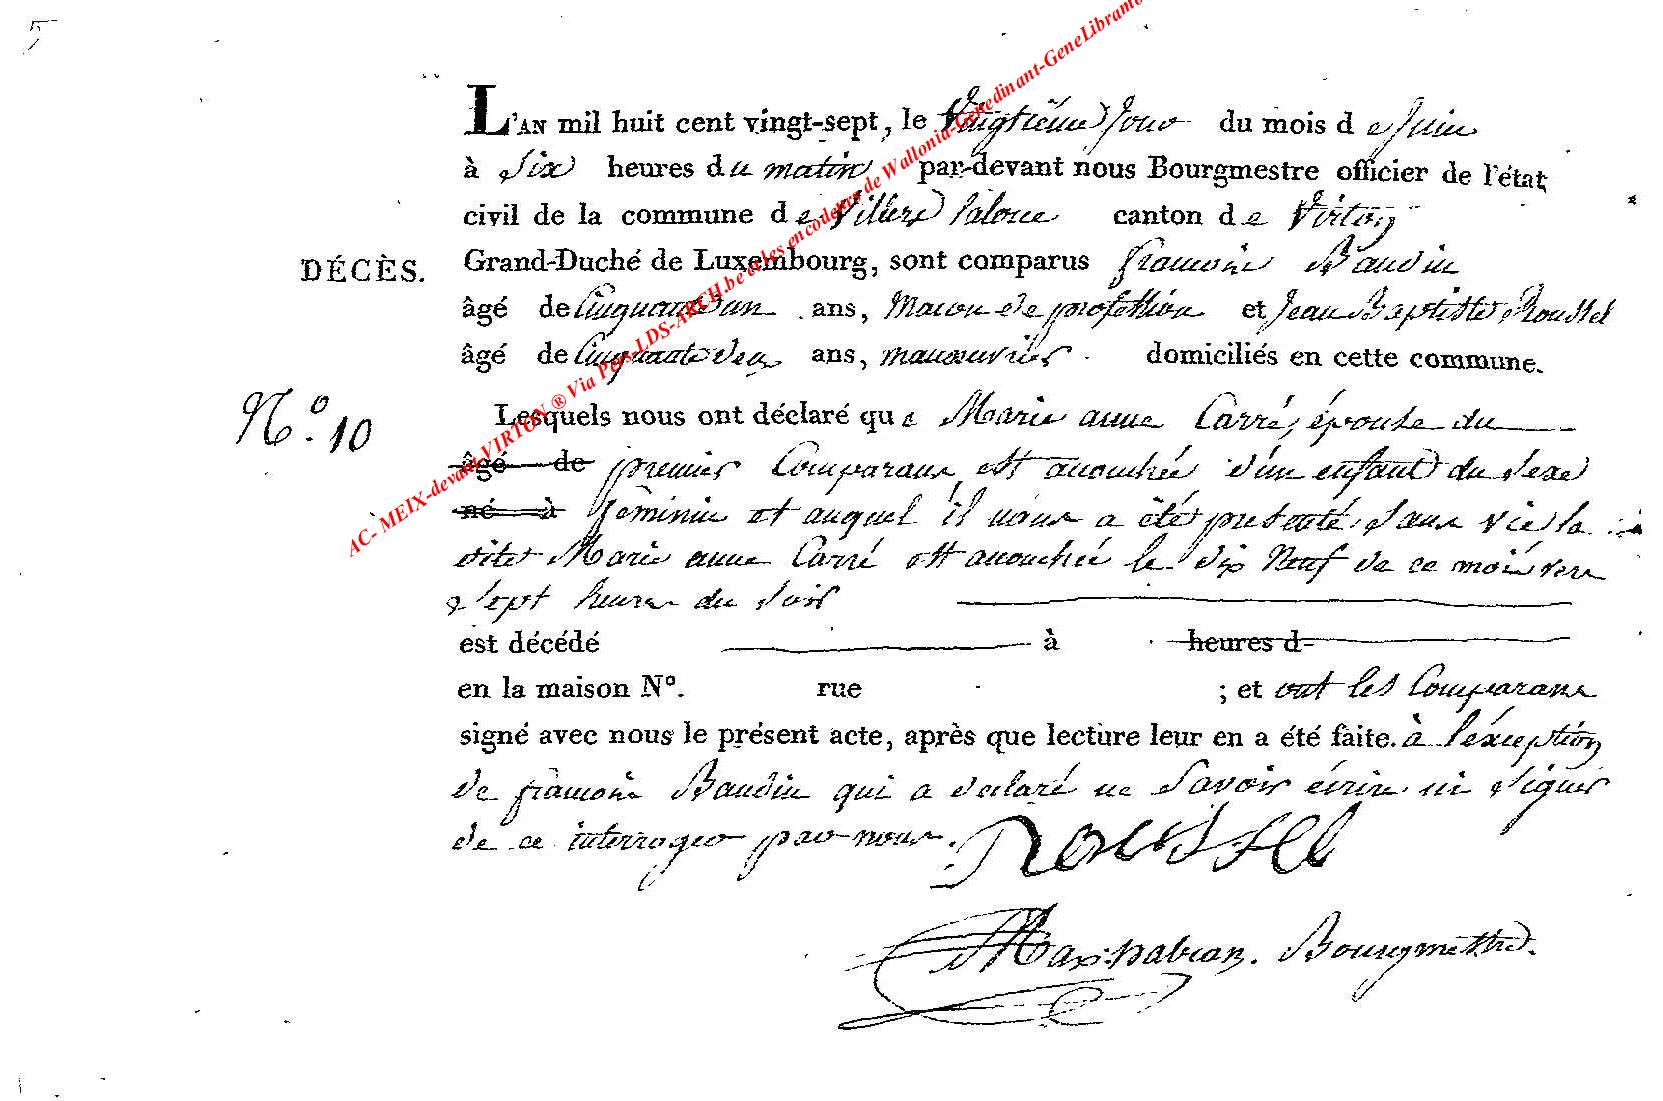 5
L'AN mil huit cent vingt-sept, le Vingtiéme Jour du mois de Juin
à Six heures du matin par-devant nous Bourgmestre officier de l'état
civil de la commune de Villers laloue canton de Virton
DÉCÈS.
Grand-Duché de Luxembourg, sont comparus francois Baudin
âgé de Cinquante un ans, Macon de profession et Jean Baptiste Roussel
âgé de Cinquante deux ans, manouvrier domiciliés en cette commune.
N.º 10
Lesquels nous ont déclaré que Marie anne Carré, épouse du
âgé de premier Comparans est accouchée d'un enfant du sexe
né à féminin et auquel il nous a été presenté sans vie, la
dite Marie anne Carré est accouchée le dix Neuf de ce mois vers
sept heures du soir
est décédé à heures d
en la maison Nº. rue ; et ont les Comparans
signé avec nous le présent acte, après que lecture leur en a été faite. à l'éxception
de francois Baudin qui a declaré ne savoir écrire ni signer
de ce interroger par nous.
Roussel
Bourgmestre.
AC- MEIX-devant-VIRTON ® Via Pers-LDS-ARCH.be et les encodeurs de Wallonia-Genedinant-GeneLibramo